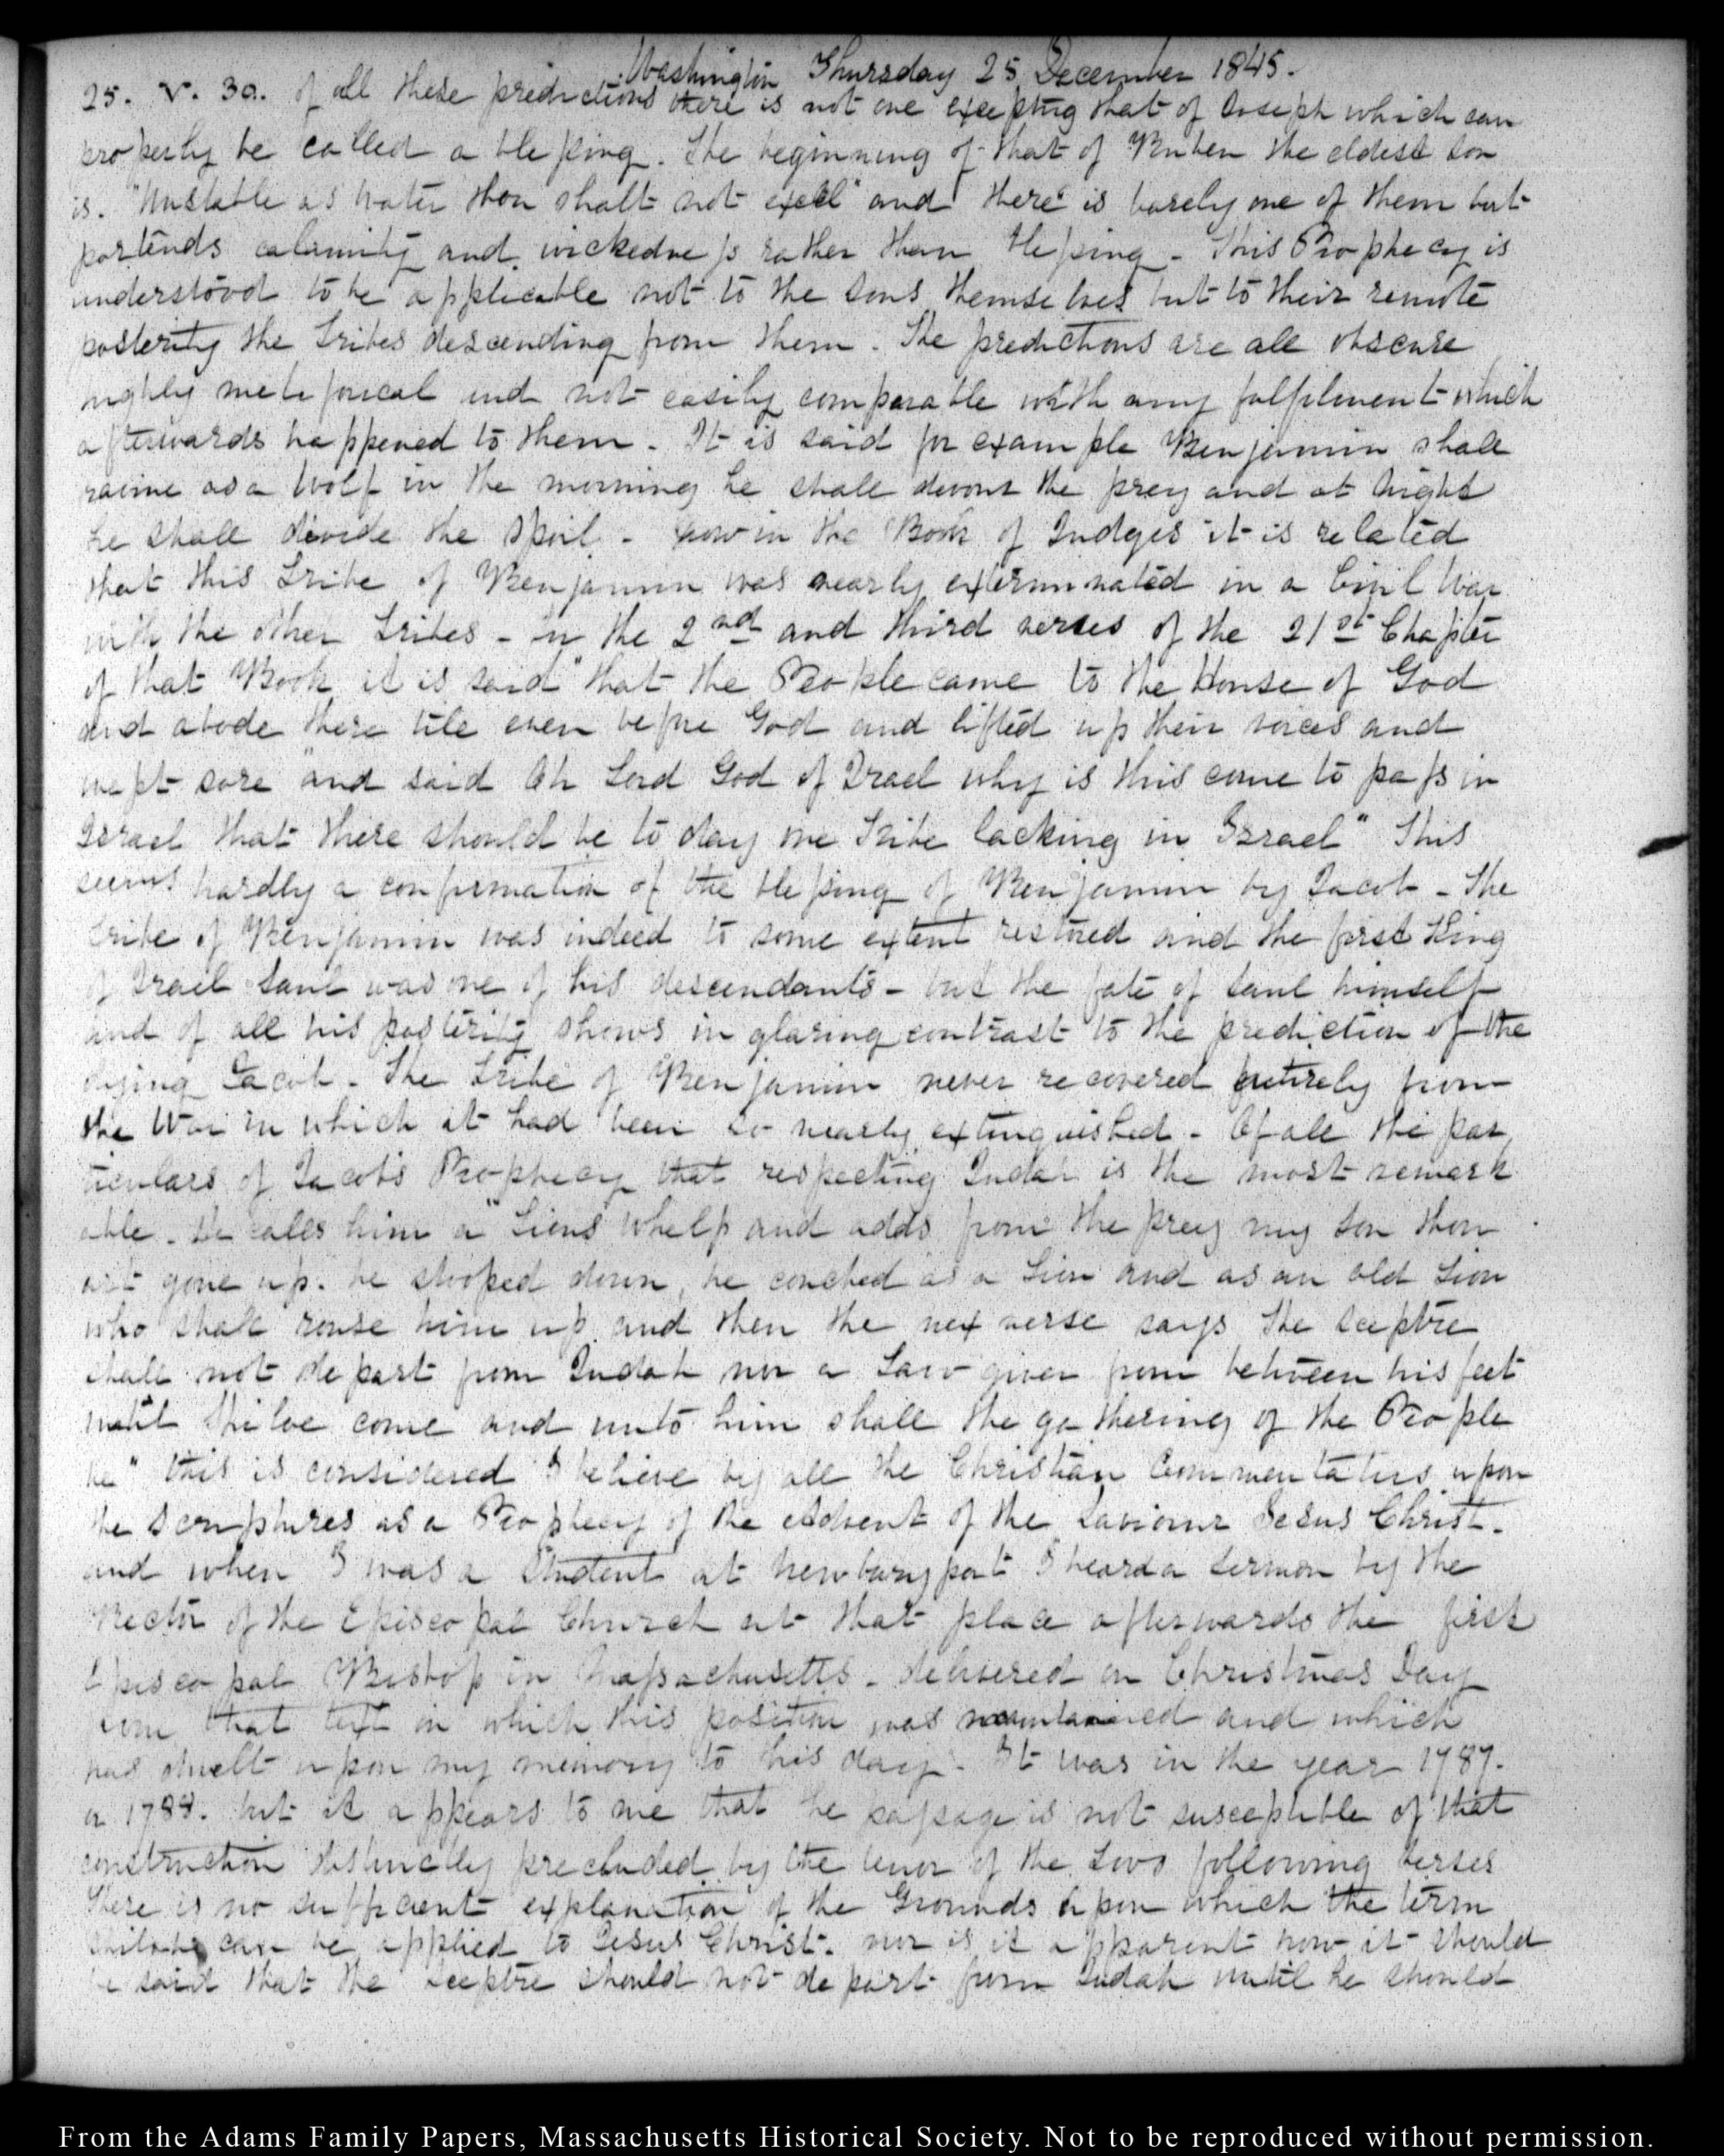 Washington Thursday 25 December 1845.
25. V. 30. of all these predictions there is not one excepting that of Joseph which can
properly be called a blessing. The beginning of that of Reuben the eldest son
is. "Unstable as water thou shalt not excel" and there is barely one of them but
portends calamity and wickedness rather than blessing - This Prophecy is
understood to be applicable not to the sons themselves but to their remote
posterity the Tribes descending from them. The predictions are all obscure
highly metaforical and not easily comparable with any fulfilment which
afterwards happened to them. It is said for example Benjamin shall
ravine as a Wolf in the morning he shall devour the prey and at night
he shall divide the spoil - now in the Book of Judges it is related
that this Tribe of Benjamin was nearly exterminated in a Civil War
with the other Tribes - in the 2nd and third verses of the 21st Chapter
of that Book it is said "that the People came to the House of God
and abode there till even before God and lifted up their voices and
wept sore "and said Oh Lord God of Israel why is this come to pass in
Israel that there should be to day one Tribe lacking in Israel" This
seems hardly a confirmation of the blessing of Benjamin by Jacob - The
Tribe of Benjamin was indeed to some extent restored and the first King
of Israel Saul was one of his descendants - but the fate of Saul himself
and of all his posterity shows in glaring contrast to the prediction of the
dying Jacob. The Tribe of Benjamin never recovered entirely from
the War in which it had been so nearly extinguished - Of all the par
ticulars of Jacob's Prophecy that respecting Judah is the most remark
able. He calls him a "Lions Whelp and adds from the prey my son thou
art gone up. he stooped down, he couched as a Lion and as an old Lion
who shall rouse him up and then the next verse says the sceptre
shall not depart from Judah nor a Law giver from between his feet
until Shiloe come and unto him shall the gathering of the People
be" this is considered I believe by all the Christian Commentators upon
the Scriptures as a Prophecy of the Advent of the Saviour Jesus Christ.
and when I was a Student at Newburyport I heard a sermon by the
Rector of the Episcopal Church at that place afterwards the first
Episcopal Bishop in Massachusetts - delivered on Christmas Day
from that text in which this position was maintained and which
has dwelt upon my memory to this day. It was in the year 1787.
or 1788. but it appears to me that the passage is not susceptible of that
construction distinctly precluded by the tenor of the two following verses
There is no sufficient explanation of the Grounds upon which the term
can be applied to Jesus Christ. nor is it apparent how it should
be said that the sceptre should not depart from Judah until he should
From the Adams Family Papers, Massachusetts Historical Society. Not to be reproduced without permission.